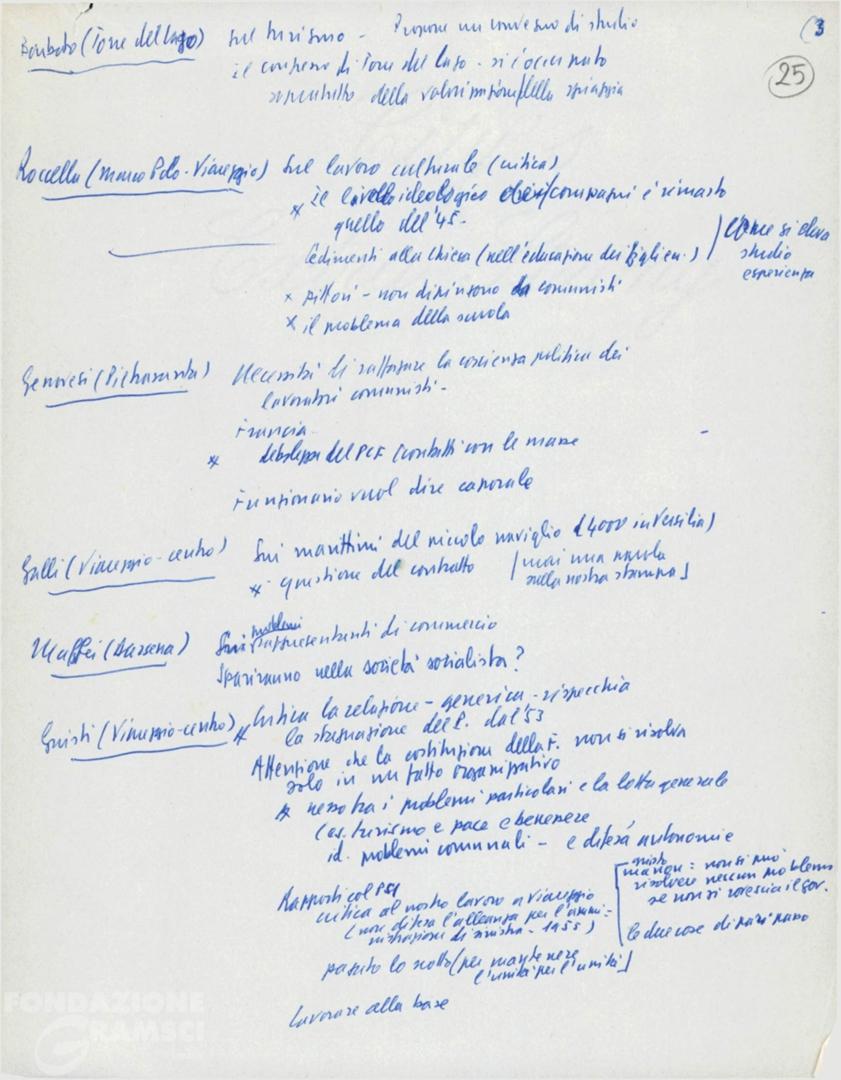 (3
25
Bombolo (Torre del Lago) sul turismo - Propone un convegno di studio
il congresso di Torre del Lago - si è occupato
soprattutto della valorizzazione della spiaggia
Roccella (Marco Polo - Viareggio) sul lavoro culturale (critica)
* il livello ideologico dei compagni è rimasto
quello del '45 -
Cedimenti alla Chiesa (nell'educazione dei figli ecc.)
Come si eleva
studio
esperienza
* pittori - non dipingono da comunisti
* il problema della scuola
Genovesi (Pietrasanta) Necessità di rafforzare la coscienza politica dei
lavoratori comunisti -
Francia -
* debolezza del PCF contatti con le masse
Funzionario vuol dire caporale
Galli (Viareggio - centro) Sui marittimi del piccolo naviglio (4000 in Versilia)
* questione del contratto
[mai una parola
sulla nostra stampa]
Maffei (Darsena) Sui problemi rappresentanti di commercio
Spariranno nella società socialista?
Giusti (Viareggio - centro) * Critica la relazione - generica - rispecchia
la stagnazione del P. dal '53
Attenzione che la costituzione della F. non si risolva
solo in un fatto organizzativo
* nesso tra i problemi particolari e la lotta generale
(es. turismo e pace e benessere
id. problemi comunali - e difesa autonomie
Rapporti col PSI
critica al nostro lavoro a Viareggio
(non difesa l'alleanza per l'ammi=
nistrazione di sinistra - 1955)
[giusto
manca: non si può
risolvere nessun problema
se non si rovescia il gov.
le due cose di pari passo
pagato lo scotto (per mantenere
l'unità per l'unità]
lavorare alla base
FONDAZIONE
GRAMSCI